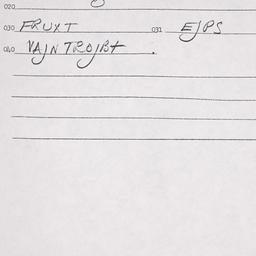 020
030 FRUXT 031 EJPS
040 VAJN TROJBT